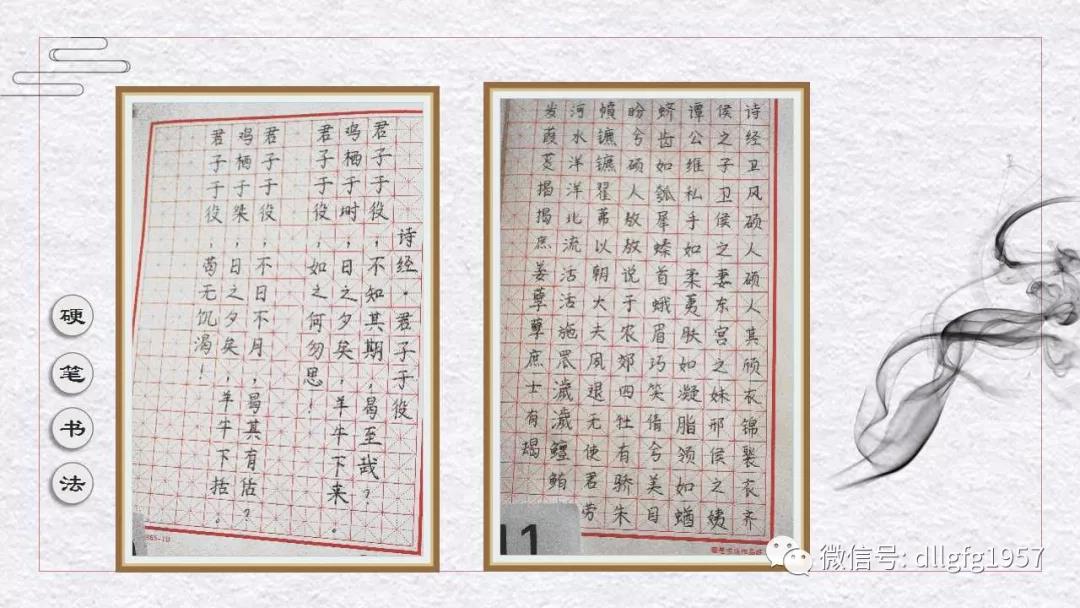 硬笔书法
诗经·君子于役
君子于役，不知其期，曷至哉？
鸡栖于埘，日之夕矣，羊牛下来。
君子于役，如之何勿思！
君子于役，不日不月，曷其有佸？
鸡栖于桀，日之夕矣，羊牛下括。
君子于役，苟无饥渴！
诗经卫风硕人硕人其颀衣锦褧衣齐
侯之子卫侯之妻东宫之妹邢侯之姨
谭公维私手如柔荑肤如凝脂领如蝤
蛴齿如瓠犀螓首蛾眉巧笑倩兮美目
盼兮硕人敖敖说于农郊四牡有骄朱
幩镳镳翟茀以朝大夫夙退无使君劳
河水洋洋北流活活施罛濊濊鳣鲔
发葭菼揭揭庶姜孽孽庶士有朅
11
微信号: dllgfg1957